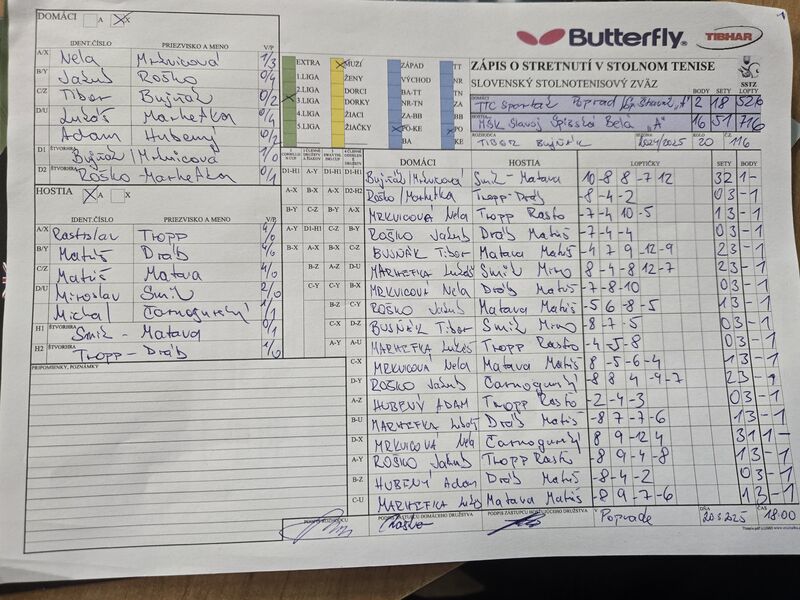 DOMÁCI A X
IDENT.ČÍSLO PRIEZVISKO A MENO V/P
A/X Nela Mrkvicová 1/3
B/Y Jakub Roško 0/4
C/Z Tibor Bujňák 0/2
D/U Lukáš Marhefka 0/4
Adam Hubený 0/2
D1 ŠTVORHRA Bujňák/Mrkvicová 1/0
D2 ŠTVORHRA Roško-Marhefka 0/1
HOSTIA A X
IDENT.ČÍSLO PRIEZVISKO A MENO V/P
A/X Rastislav Tropp 4/0
B/Y Matúš Dráb 4/0
C/Z Matúš Matava 4/0
D/U Miroslav Smik 2/0
Michal Čarnogurský 1/1
H1 ŠTVORHRA Smik - Matava 0/1
H2 ŠTVORHRA Tropp-Dráb 1/0
PRIPOMIENKY, POZNÁMKY
EXTRA
1.LIGA
2.LIGA
3.LIGA
4.LIGA
5.LIGA
MUŽI
ŽENY
DORCI
DORKY
ŽIACI
ŽIAČKY
ZÁPAD
VÝCHOD
BA-TT
NR-TN
ZA-BB
PO-KE
TT
NR
TN
ZA
BB
PO
KE
BA
Butterfly
TIBHAR
ZÁPIS O STRETNUTÍ V STOLNOM TENISE
SLOVENSKÝ STOLNOTENISOVÝ ZVÄZ
SSTZ
BODY SETY LOPTY
DOMÁCI TTC Spartak Poprad "A" 2 18 526
HOSTIA MŠK Slavoj Spišská Belá "A" 16 51 716
ROZHODCA TIBOR BUJŇÁK SEZÓNA 2024/2025 KOLO 20 Č.Z. 116
DOMÁCI HOSTIA LOPTIČKY SETY BODY
D1-H1 Bujňák/Mrkvicová Smik - Matava 10 -8 8 -7 12 3 2 1 -
D2-H2 Roško/Marhefka Tropp-Dráb -8 -4 -2 0 3 - 1
MRKVICOVÁ Nela Tropp Rasto -7 -4 10 -5 1 3 - 1
ROŠKO Jakub Dráb Matúš -7 -4 -4 0 3 - 1
BUJŇÁK Tibor Matava Matúš -4 7 9 -12 -9 2 3 - 1
MARHEFKA Lukáš Smik Miro 8 -4 -8 12 -7 2 3 - 1
MRKVICOVÁ Nela Dráb Matúš -7 -8 -10 0 3 - 1
ROŠKO Jakub Matava Matúš -5 6 -8 -5 1 3 - 1
BUJŇÁK Tibor Smik Miro -8 -7 -5 0 3 - 1
MARHEFKA Lukáš Tropp Rasto -4 -5 -8 0 3 - 1
C-X MRKVICOVÁ Nela Matava Matúš 8 -5 -6 -4 1 3 - 1
D-Y ROŠKO Jakub Čarnogurský -8 8 4 -9 -7 2 3 - 1
A-Z HUBENÝ ADAM Tropp Rasto -2 -4 -3 0 3 - 1
B-U MARHEFKA Lukáš Dráb Matúš -8 7 -7 -6 1 3 - 1
D-X MRKVICOVÁ Nela Čarnogurský 8 9 -12 4 3 1 1 -
A-Y ROŠKO Jakub Tropp Rasto -8 9 -4 -8 1 3 - 1
B-Z HUBENÝ Adam Dráb Matúš -8 -4 -2 0 3 - 1
C-U MARHEFKA Lukáš Matava Matúš -8 9 -7 -6 1 3 - 1
PODPIS ROZHODCU PODPIS ZÁSTUPCU DOMÁCEHO DRUŽSTVA PODPIS ZÁSTUPCU HOSŤUJÚCEHO DRUŽSTVA V Poprade DŇA ČAS 18:00